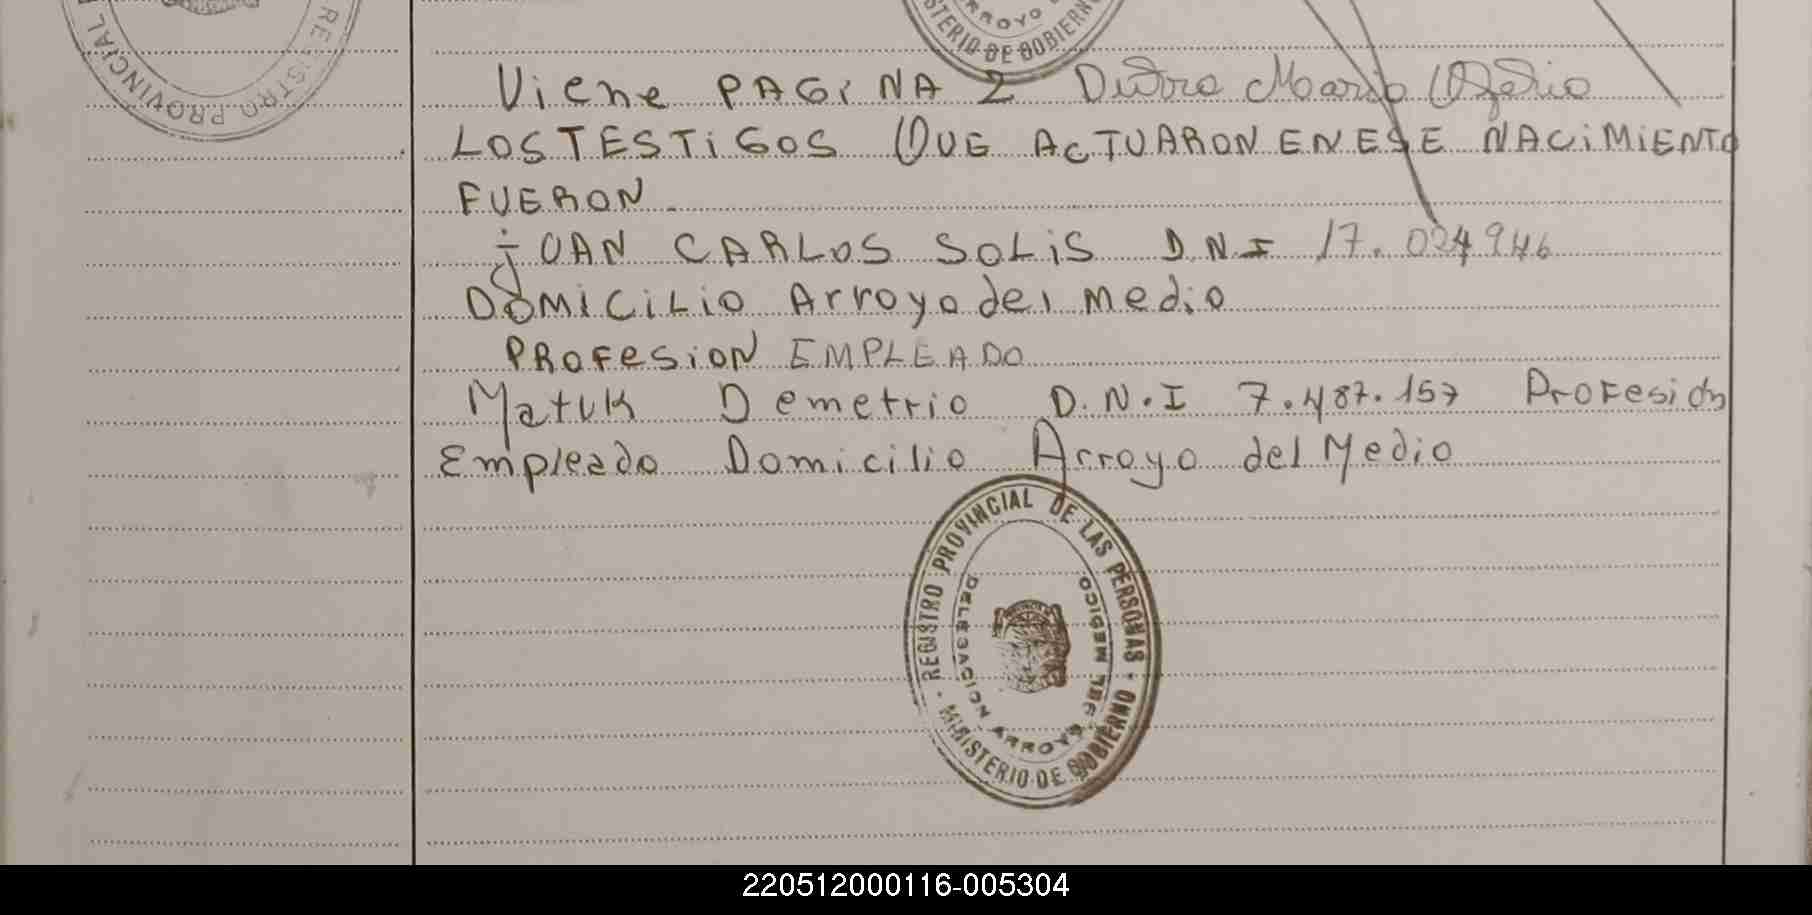 REGISTRO PROVINCIAL
MINISTERIO DE GOBIERNO
ARROYO
Viene PAGINA 2 Mario
LOS TESTIGOS QUE ACTUARON EN ESE NACIMIENTO
FUERON
jUAN CARLOS SOLIS D.N.I 17.024946
DOMICILIO Arroyo del medio
PROFESION EMPLEADO
Matuk Demetrio D.N.I 7.487.157 Profesion
Empleado Domicilio Arroyo del Medio
REGISTRO PROVINCIAL DE LAS PERSONAS · MINISTERIO DE GOBIERNO ·
DELEGACION ARROYO DEL MEDIO
220512000116-005304